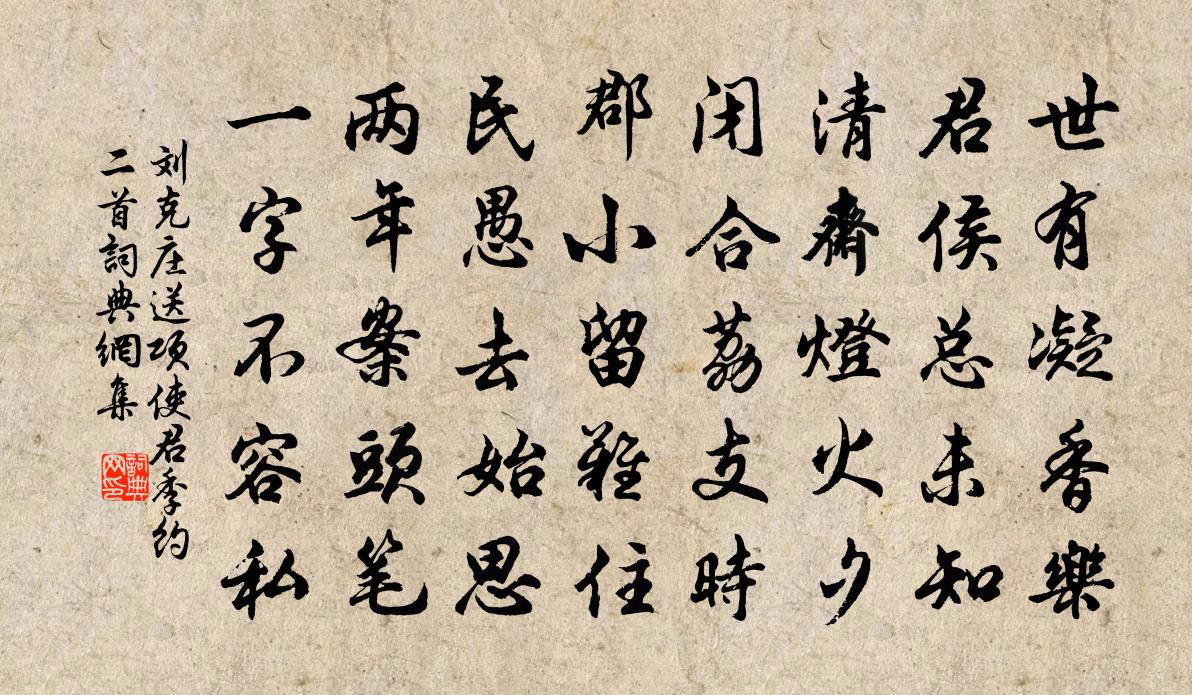 世有凝香樂
君侯总未知
清齋燈火夕
闭合荔支時
郡小留難住
民愚去始思
两年案頭笔
一字不容私
刘克庄送项使君季约
二首詞典網集
詞典网印